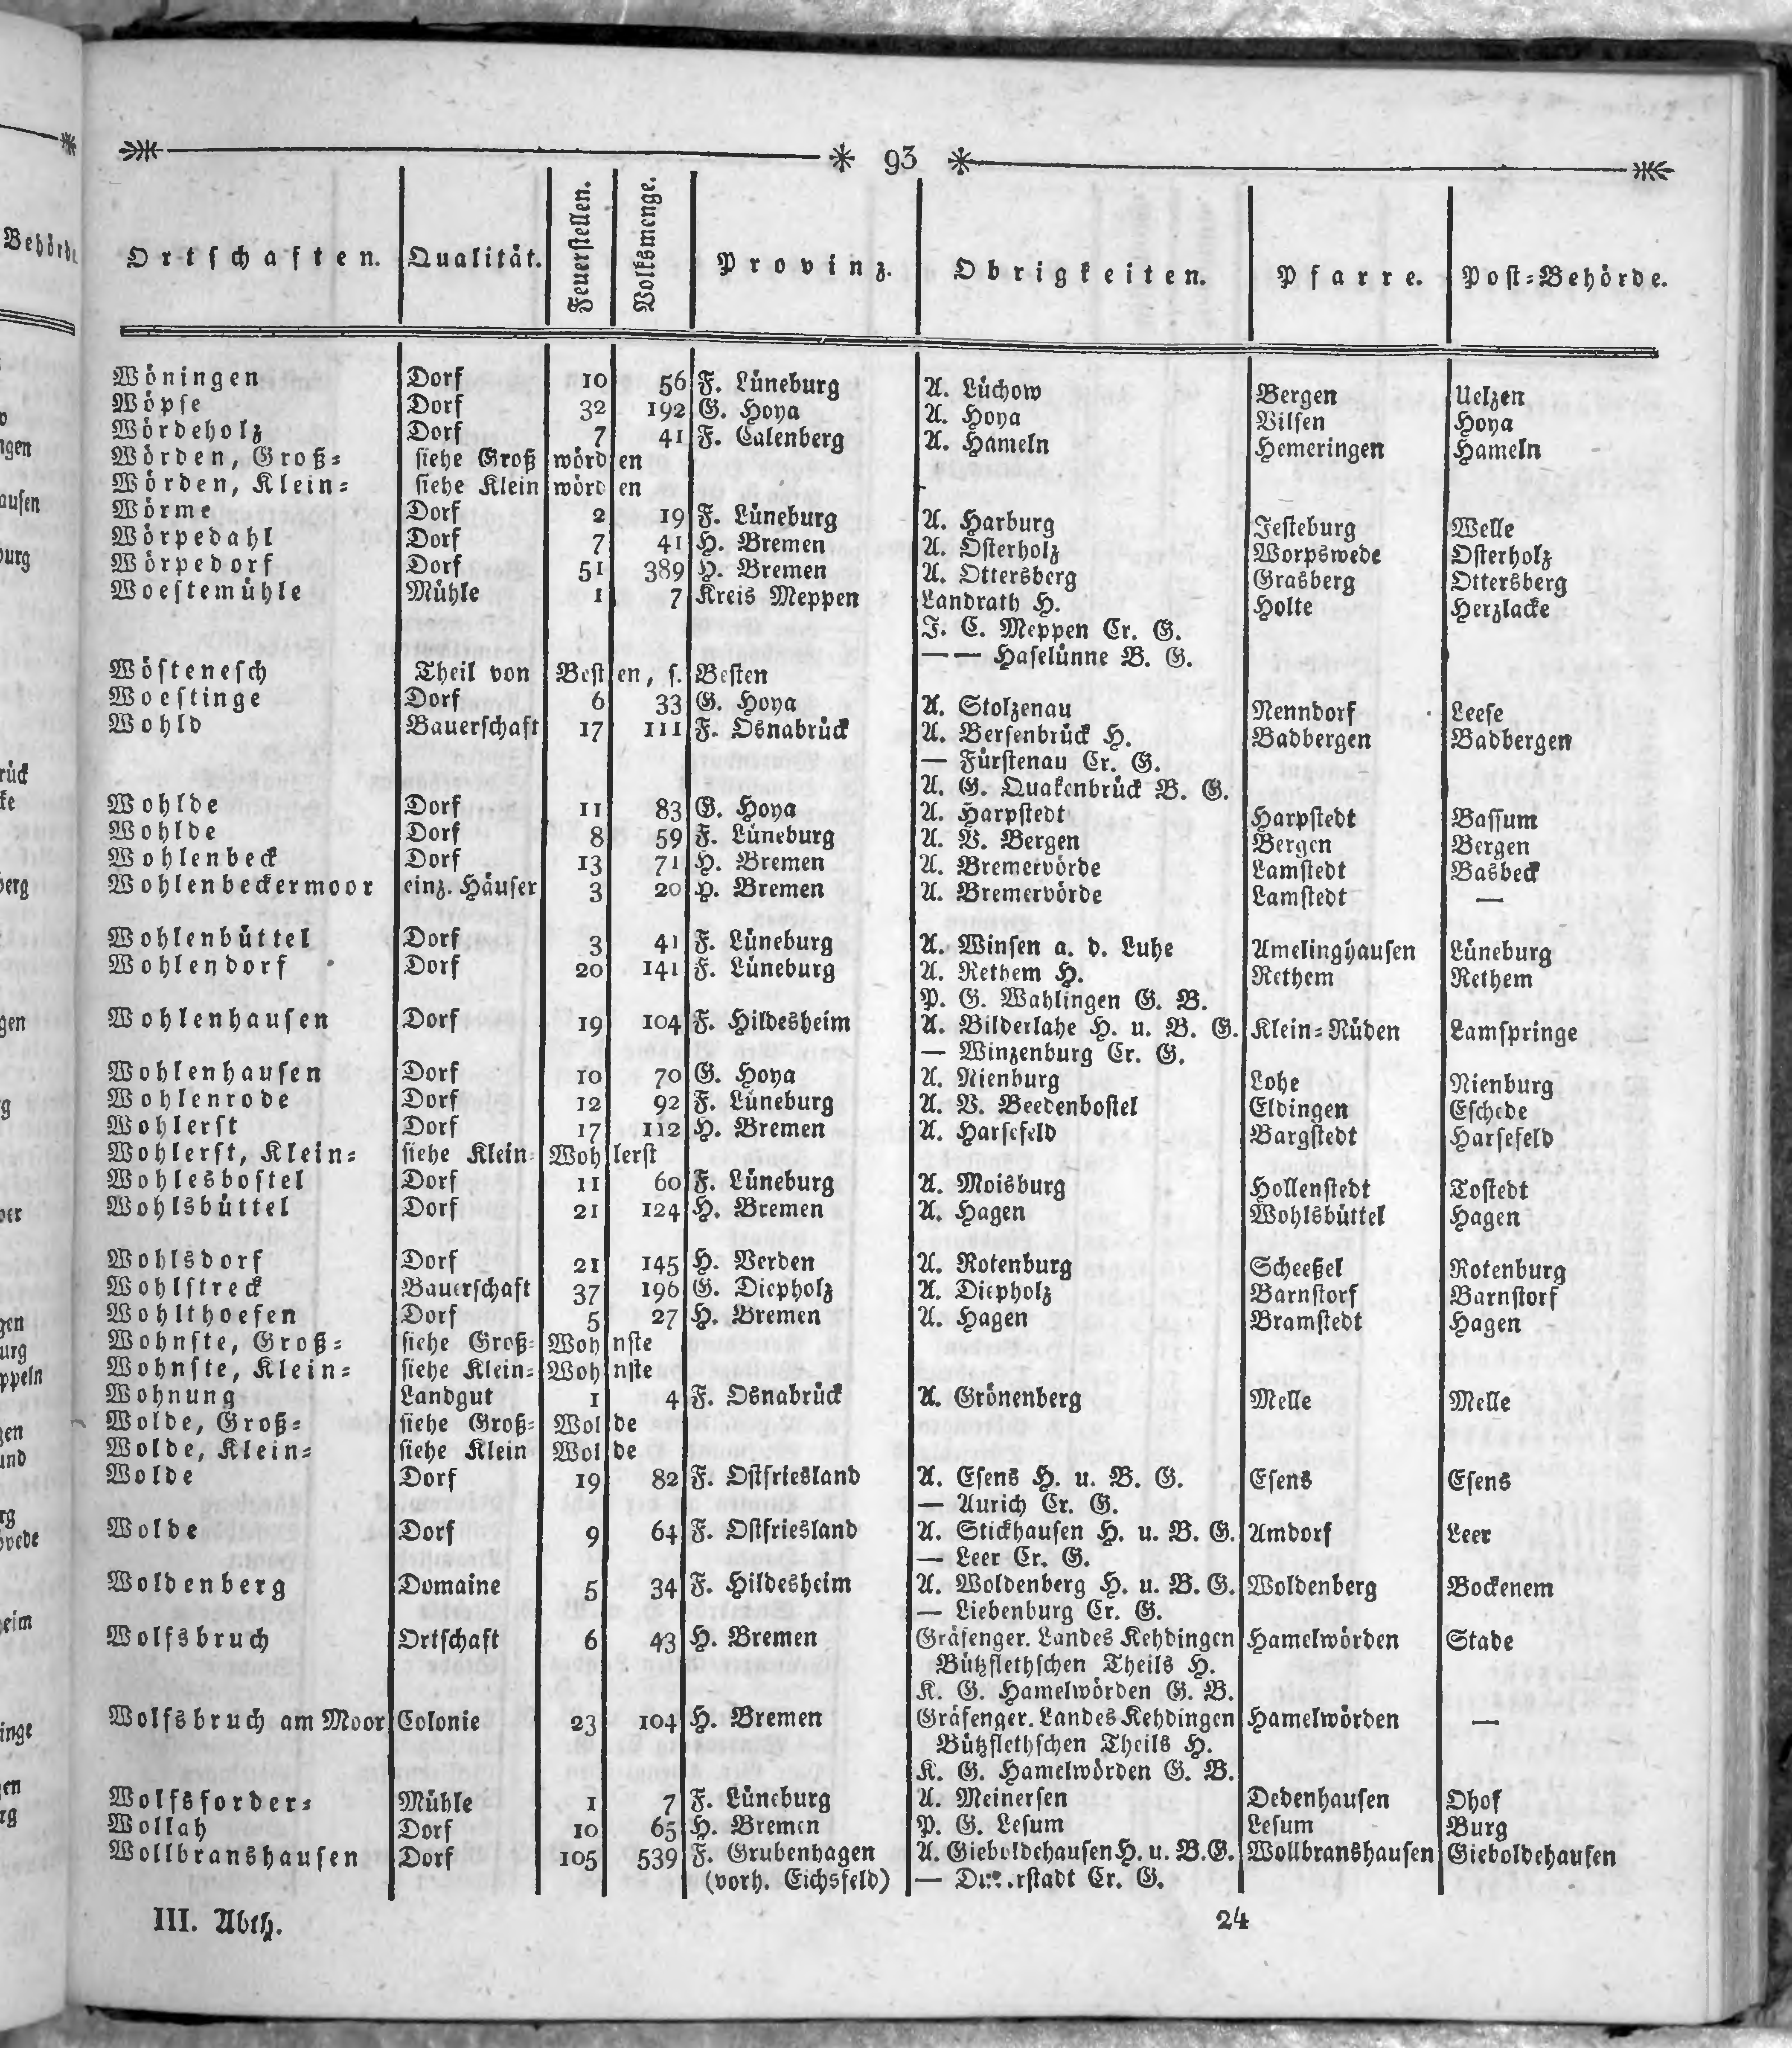 93
Ortschaften. Qualität. Feuerstellen. Volksmenge. Provinz. Obrigkeiten. Pfarre. Post-Behörde.
Wöningen Dorf 10 56 F. Lüneburg A. Lüchow Bergen Uelzen
Wöpse Dorf 32 192 G. Hoya A. Hoya Vilsen Hoya
Wördeholz Dorf 7 41 F. Calenberg A. Hameln Hemeringen Hameln
Wörden, Groß- siehe Groß wörden
Wörden, Klein- siehe Klein wörden
Wörme Dorf 2 19 F. Lüneburg A. Harburg Jesteburg Welle
Wörpedahl Dorf 7 41 H. Bremen A. Osterholz Worpswede Osterholz
Wörpedorf Dorf 51 389 H. Bremen A. Ottersberg Grasberg Ottersberg
Woestemühle Mühle 1 7 Kreis Meppen Landrath H. Holte Herzlacke
J. C. Meppen Cr. G.
—— Haselünne B. G.
Wöstenesch Theil von Besten, s. Besten
Woestinge Dorf 6 33 G. Hoya A. Stolzenau Nenndorf Leese
Wohld Bauerschaft 17 111 F. Osnabrück A. Bersenbrück H. Badbergen Badbergen
— Fürstenau Cr. G.
A. G. Quakenbrück B. G.
Wohlde Dorf 11 83 G. Hoya A. Harpstedt Harpstedt Bassum
Wohlde Dorf 8 59 F. Lüneburg A. V. Bergen Bergen Bergen
Wohlenbeck Dorf 13 71 H. Bremen A. Bremervörde Lamstedt Basbeck
Wohlenbeckermoor einz. Häuser 3 20 H. Bremen A. Bremervörde Lamstedt —
Wohlenbüttel Dorf 3 41 F. Lüneburg A. Winsen a. d. Luhe Amelinghausen Lüneburg
Wohlendorf Dorf 20 141 F. Lüneburg A. Rethem H. Rethem Rethem
P. G. Wahlingen G. B.
Wohlenhausen Dorf 19 104 F. Hildesheim A. Bilderlahe H. u. B. G. Klein-Rüden Lamspringe
— Winzenburg Cr. G.
Wohlenhausen Dorf 10 70 G. Hoya A. Nienburg Lohe Nienburg
Wohlenrode Dorf 12 92 F. Lüneburg A. V. Beedenbostel Eldingen Eschede
Wohlerst Dorf 17 112 H. Bremen A. Harsefeld Bargstedt Harsefeld
Wohlerst, Klein- siehe Klein-Wohlerst
Wohlesbostel Dorf 11 60 F. Lüneburg A. Moisburg Hollenstedt Tostedt
Wohlsbüttel Dorf 21 124 H. Bremen A. Hagen Wohlsbüttel Hagen
Wohlsdorf Dorf 21 145 H. Verden A. Rotenburg Scheeßel Rotenburg
Wohlstreck Bauerschaft 37 196 G. Diepholz A. Diepholz Barnstorf Barnstorf
Wohlthoefen Dorf 5 27 H. Bremen A. Hagen Bramstedt Hagen
Wohnste, Groß- siehe Groß-Wohnste
Wohnste, Klein- siehe Klein-Wohnste
Wohnung Landgut 1 4 F. Osnabrück A. Grönenberg Melle Melle
Wolde, Groß- siehe Groß-Wolde
Wolde, Klein- siehe Klein Wolde
Wolde Dorf 19 82 F. Ostfriesland A. Esens H. u. B. G. Esens Esens
— Aurich Cr. G.
Wolde Dorf 9 64 F. Ostfriesland A. Stickhausen H. u. B. G. Amdorf Leer
— Leer Cr. G.
Woldenberg Domaine 5 34 F. Hildesheim A. Woldenberg H. u. B. G. Woldenberg Bockenem
— Liebenburg Cr. G.
Wolfsbruch Ortschaft 6 43 H. Bremen Gräfenger. Landes Kehdingen Hamelwörden Stade
Bützflethschen Theils H.
K. G. Hamelwörden G. B.
Wolfsbruch am Moor Colonie 23 104 H. Bremen Gräfenger. Landes Kehdingen Hamelwörden —
Bützflethschen Theils H.
K. G. Hamelwörden G. B.
Wolfsforder- Mühle 1 7 F. Lüneburg A. Meinersen Dedenhausen Ohof
Wollah Dorf 10 65 H. Bremen P. G. Lesum Lesum Burg
Wollbranshausen Dorf 105 539 F. Grubenhagen A. Gieboldehausen H. u. B. G. Wollbranshausen Gieboldehausen
(vorh. Eichsfeld) — Cr. G.
III. Abth. 24